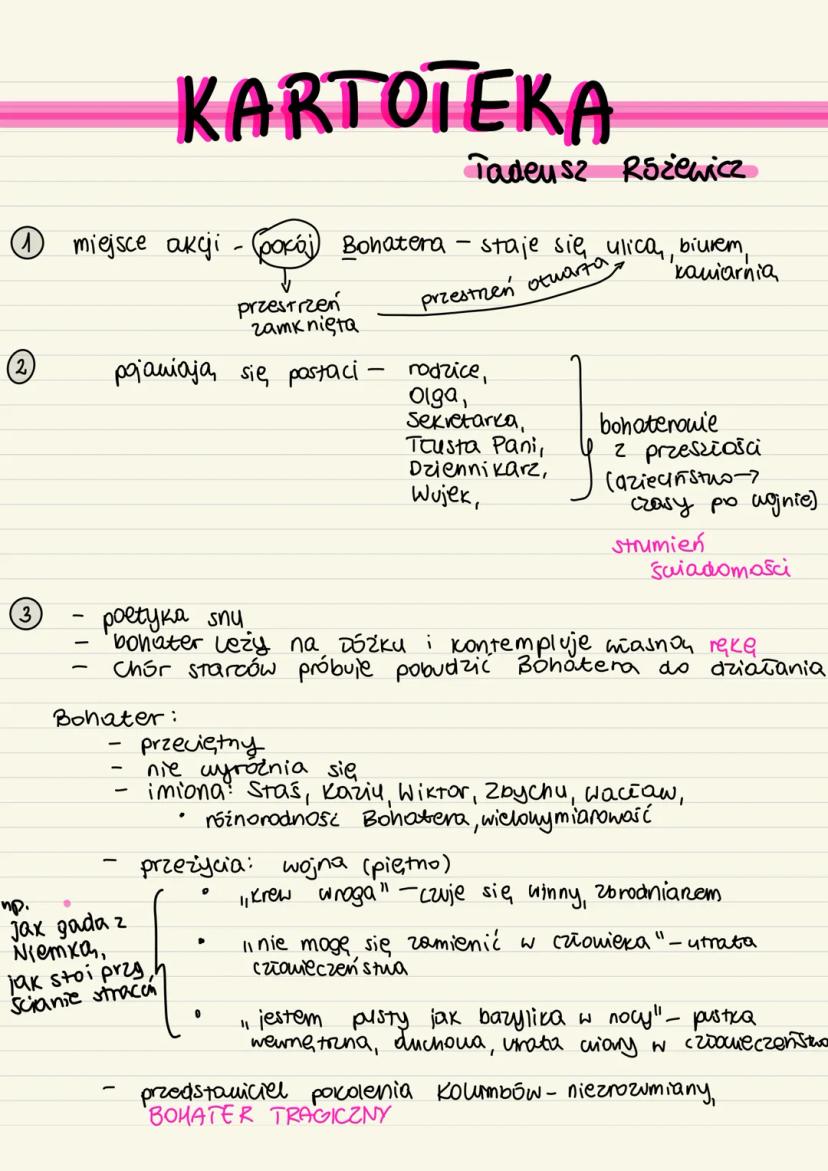 KARTOTEKA
Tadeusz Różewicz
1 miejsce akcji - pokój Bohatera - staje się ulicą, biurem,
kawiarnią
przestrzeń otwarta
przestrzeń
zamknięta
2 pojawiają się postaci - rodzice,
Olga,
Sekretarka,
Tłusta Pani,
Dziennikarz,
Wujek,
bohaterowie
z przeszłości
(dzieciństwo →
czasy po wojnie)
strumień
świadomości
3 - poetyka snu
- bohater leży na łóżku i kontempluje własną rękę
- Chór starców próbuje pobudzić Bohatera do działania
Bohater:
- przeciętny
- nie wyróżnia się
- imiona: Staś, Kaziu, Wiktor, Zbychu, Wacław,
• różnorodność Bohatera, wielowymiarowość
- przeżycia: wojna (piętno)
• „krew wroga" - czuje się winny, zbrodniarzem
np.
jak gada z
Niemką,
jak stoi przy
ścianie straceń
• „nie mogę się zamienić w człowieka" - utrata
człowieczeństwa
• „jestem pusty jak bazylika w nocy" - pustka
wewnętrzna, duchowa, utrata wiary w człowieczeństwo
- przedstawiciel pokolenia Kolumbów - niezrozumiany,
BOHATER TRAGICZNY